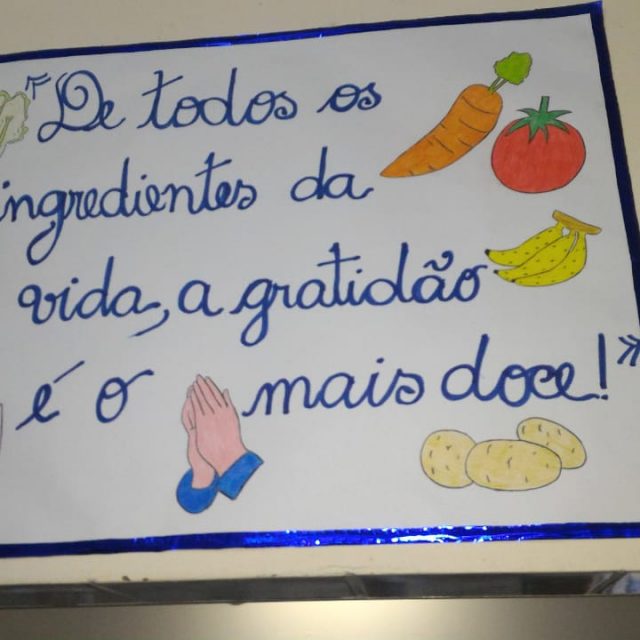 "De todos os
ingredientes da
vida, a gratidão
é o mais doce!"